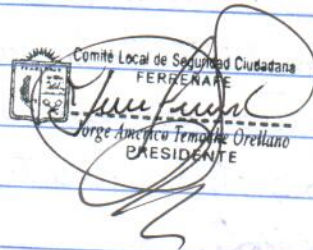 Comité Local de Seguridad Ciudadana
FERREÑAFE
Jorge Américo Temoche Orellano
PRESIDENTE